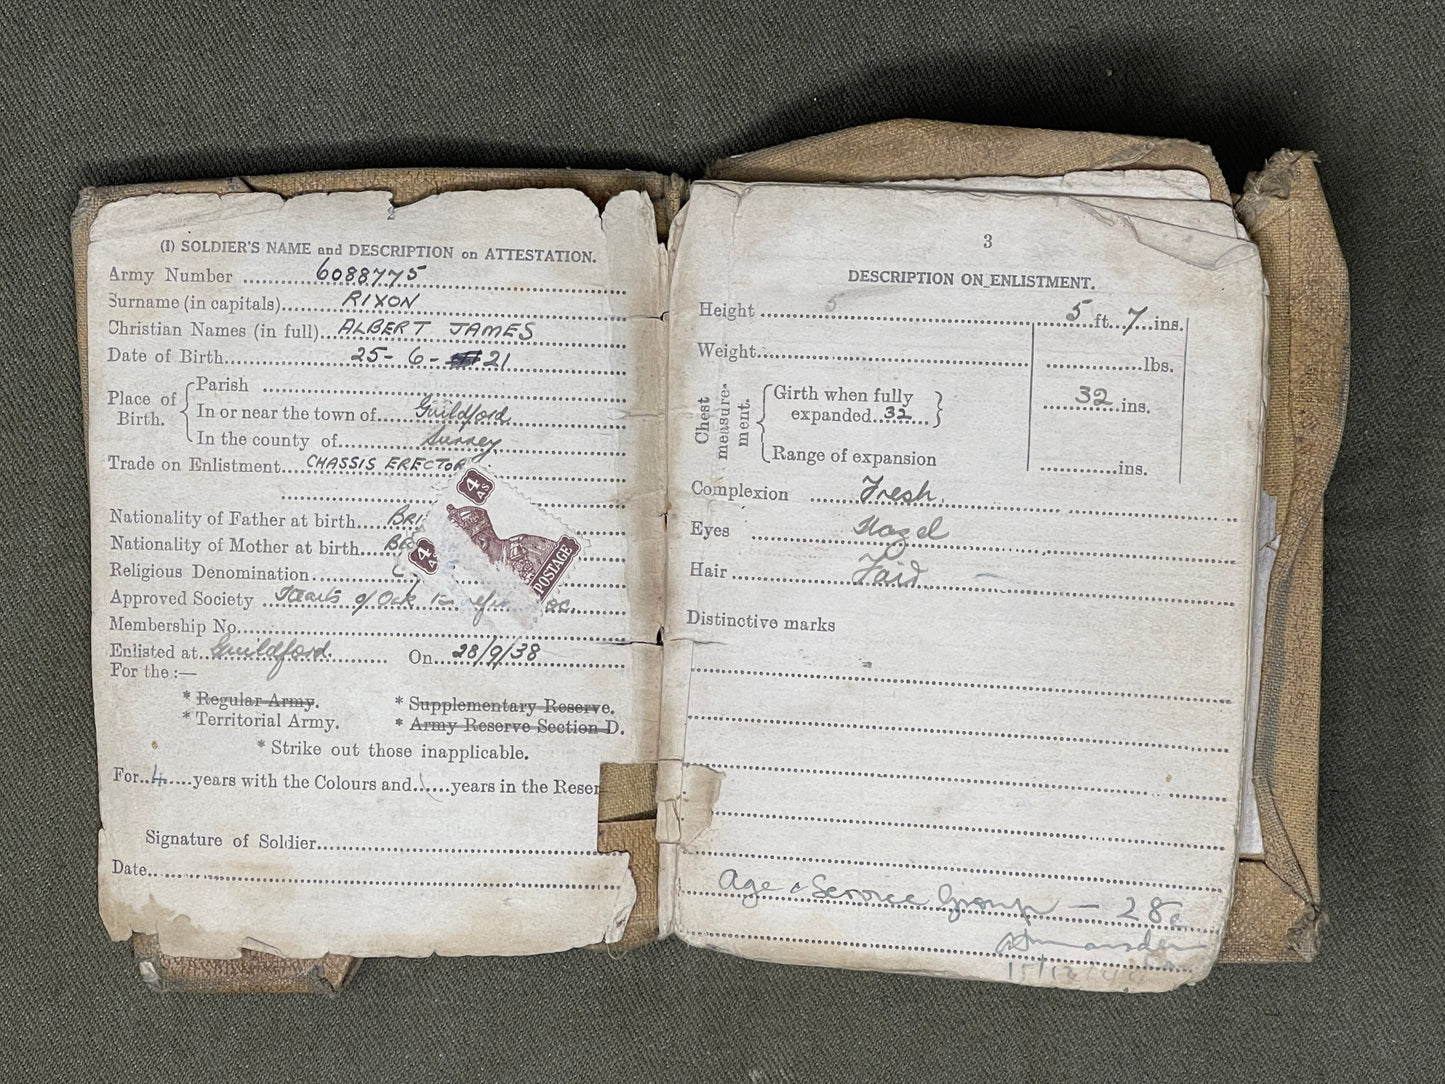 2
(1) SOLDIER'S NAME and DESCRIPTION on ATTESTATION.
Army Number 6088775
Surname (in capitals) RIXON
Christian Names (in full) ALBERT JAMES
Date of Birth 25-6-21
Place of Birth. Parish
In or near the town of Guildford
In the county of Surrey
Trade on Enlistment CHASSIS ERECTOR
Nationality of Father at birth BRI
Nationality of Mother at birth
Religious Denomination C
Approved Society Hearts of Oak
Membership No.
Enlisted at Guildford. On 28/9/38
For the :—
* Regular Army. * Supplementary Reserve.
* Territorial Army. * Army Reserve Section D.
* Strike out those inapplicable.
For 4 years with the Colours and years in the Reser
Signature of Soldier
Date
4 AS
4 A
POSTAGE
3
DESCRIPTION ON ENLISTMENT.
Height 5 5 ft. 7 ins.
Weight lbs.
Chest measurement. Girth when fully expanded 32 32 ins.
Range of expansion ins.
Complexion Fresh.
Eyes Hazel
Hair Fair
Distinctive marks
Age & Service Group — 28
15/12/44